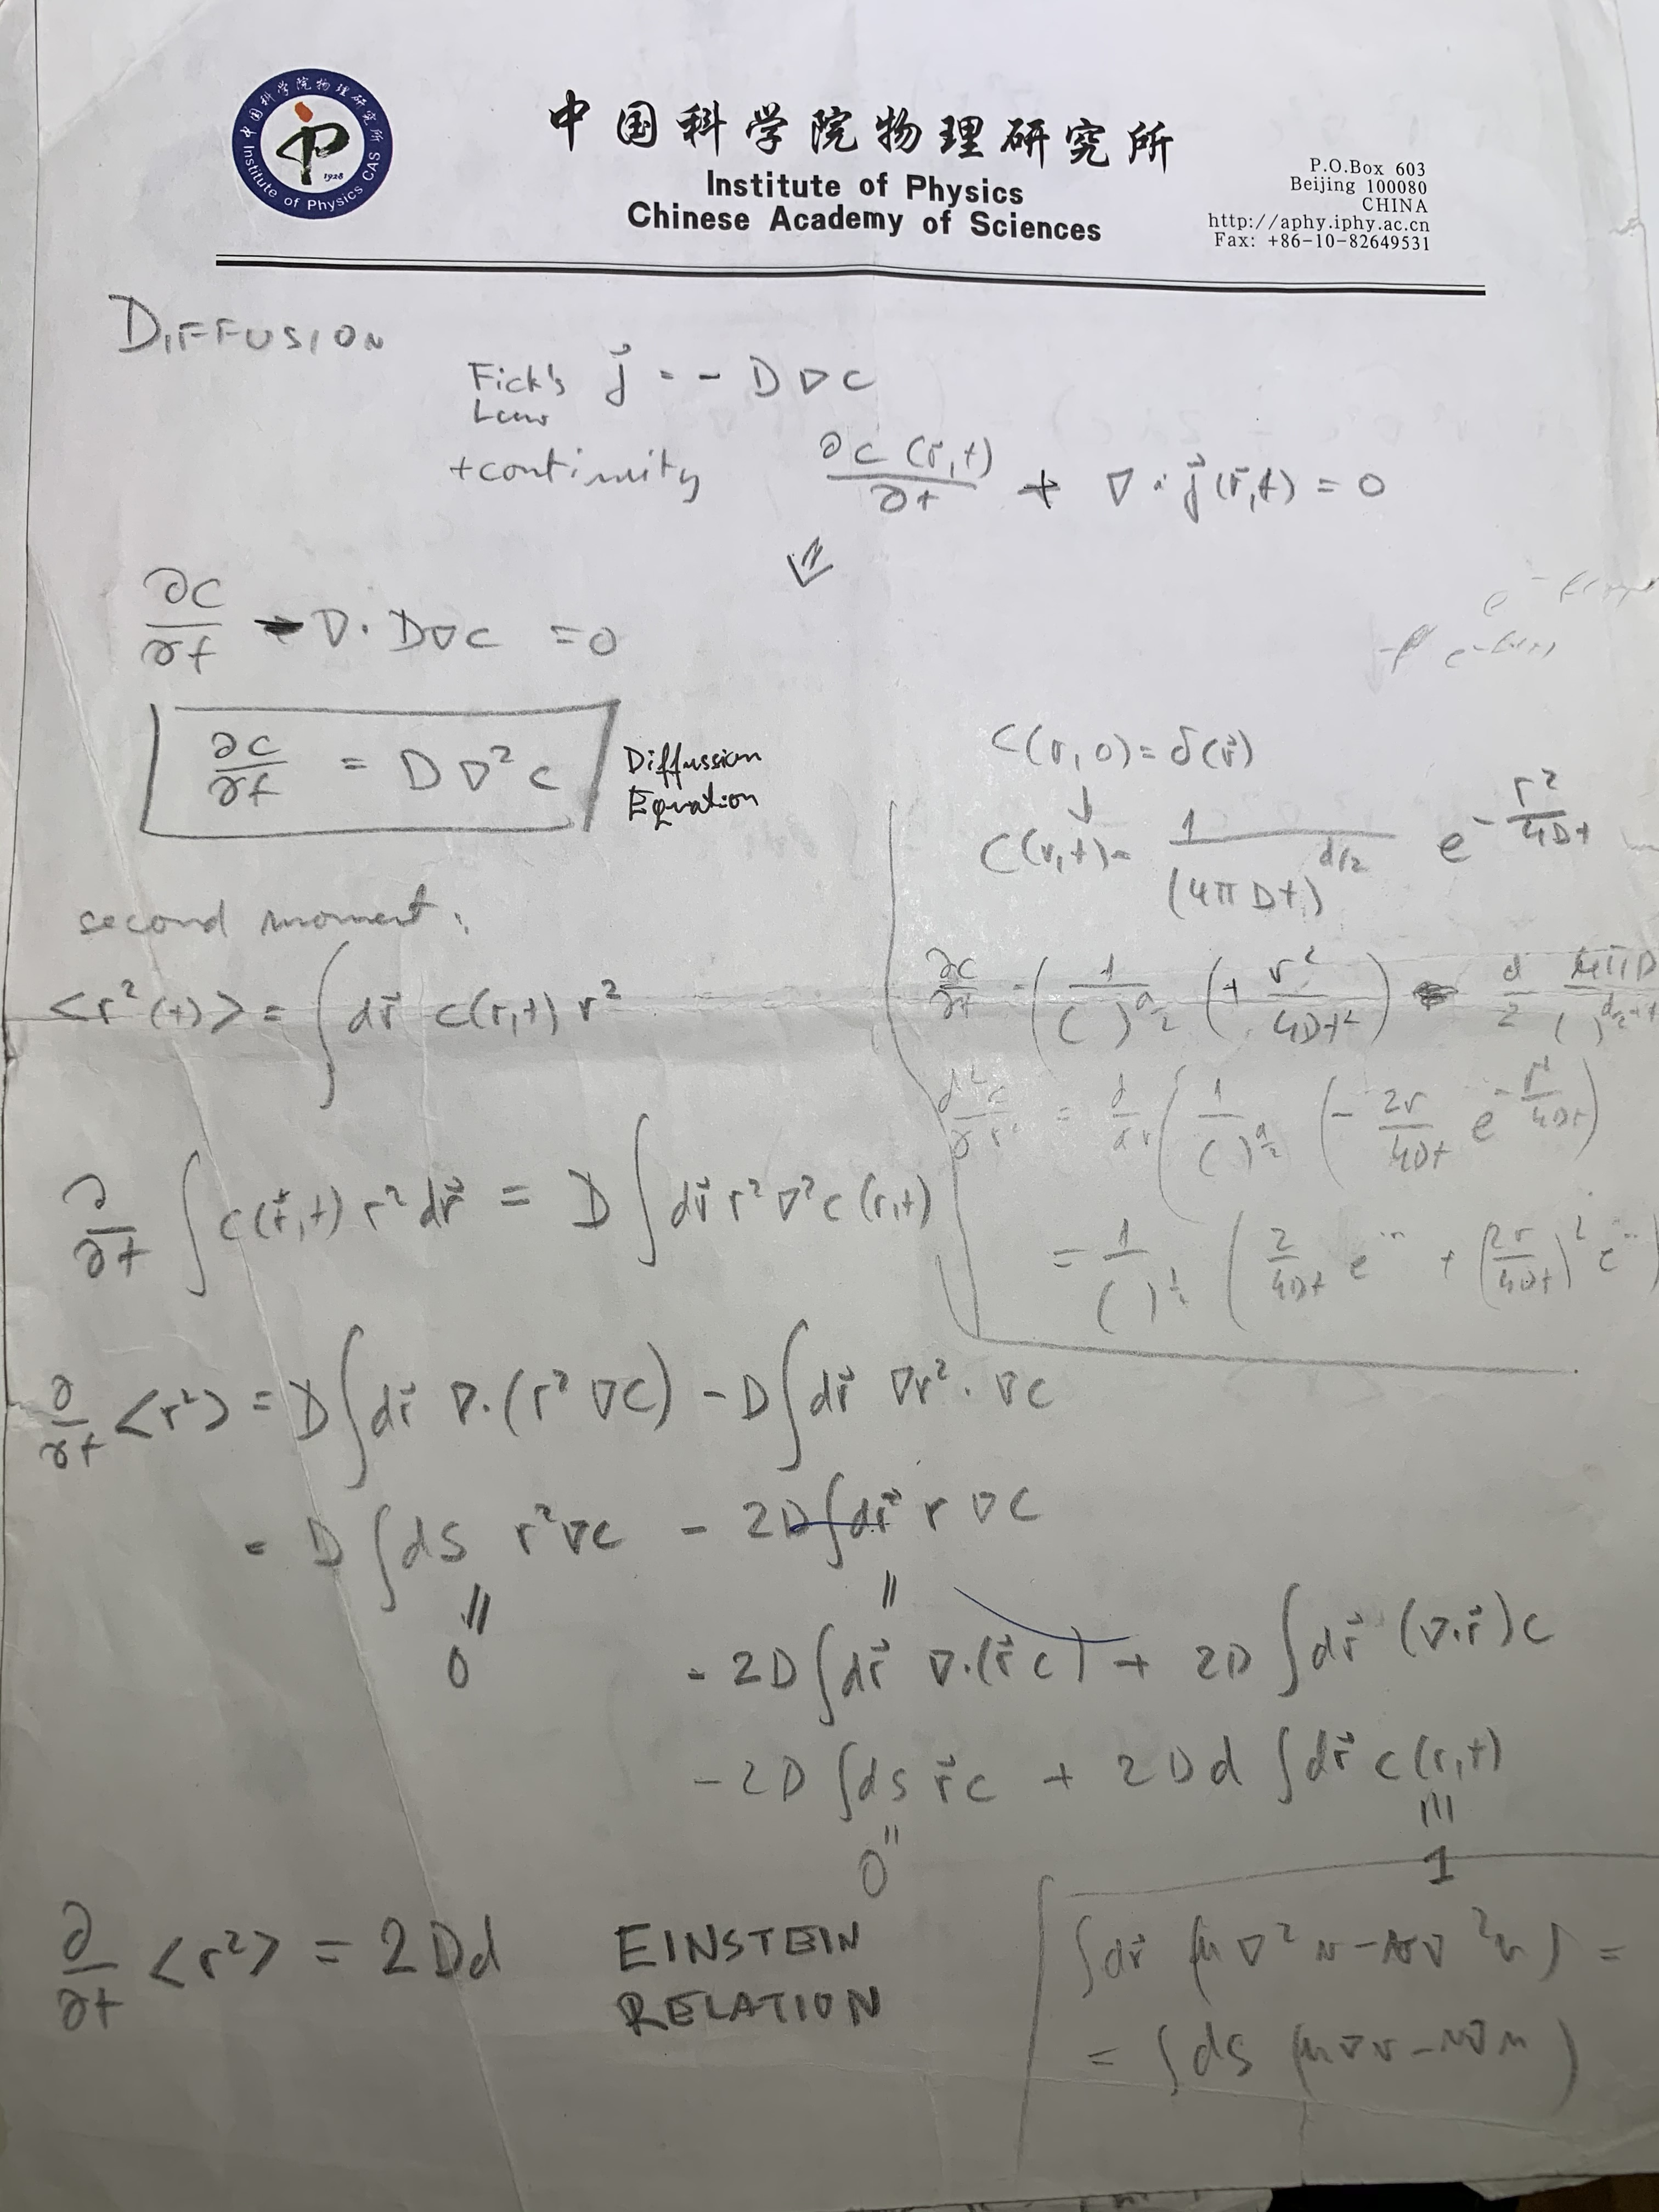 中国科学院物理研究所
Institute of Physics CAS
1928
中国科学院物理研究所
Institute of Physics
Chinese Academy of Sciences
P.O.Box 603
Beijing 100080
CHINA
http://aphy.iphy.ac.cn
Fax: +86-10-82649531
DIFFUSION
Fick's Law j⃗ = - D ∇ C
+continuity ∂C(r⃗,t)/∂t + ∇·j⃗(r⃗,t) = 0
⇙
∂C/∂t - ∇·D∇C = 0
∂C/∂t = D∇²C Diffussion Equation
C(r,0) = δ(r⃗)
↓
C(r,t) = 1/(4πDt)^(d/2) e^(-r²/4Dt)
∂C/∂t = (1/( )^(d/2) (+ r²/4Dt²) d/2 4πD/( )^(d/2+1)
∂²C/∂r² = d/dr (1/( )^(d/2) (- 2r/4Dt e^(-r²/4Dt))
= 1/( ) (2/4Dt e^... + (2r/4Dt)² e^...)
second moment:
<r²(t)> = ∫ dr⃗ C(r,t) r²
∂/∂t ∫ C(r⃗,t) r² dr⃗ = D ∫ dr⃗ r² ∇²C(r,t)
∂/∂t <r²> = D ∫ dr⃗ ∇·(r² ∇C) - D ∫ dr⃗ ∇r² · ∇C
= D ∫ dS r²∇C - 2D ∫ dr⃗ r ∇C
|| ||
0 - 2D ∫ dr⃗ ∇·(r⃗ C) + 2D ∫ dr⃗ (∇·r⃗) C
- 2D ∫ dS r⃗ C + 2Dd ∫ dr⃗ C(r,t)
|| |||
0 1
∂/∂t <r²> = 2Dd EINSTEIN RELATION
∫ dr⃗ (u∇²v - v∇²u) =
= ∫ dS (u∇v - v∇u)